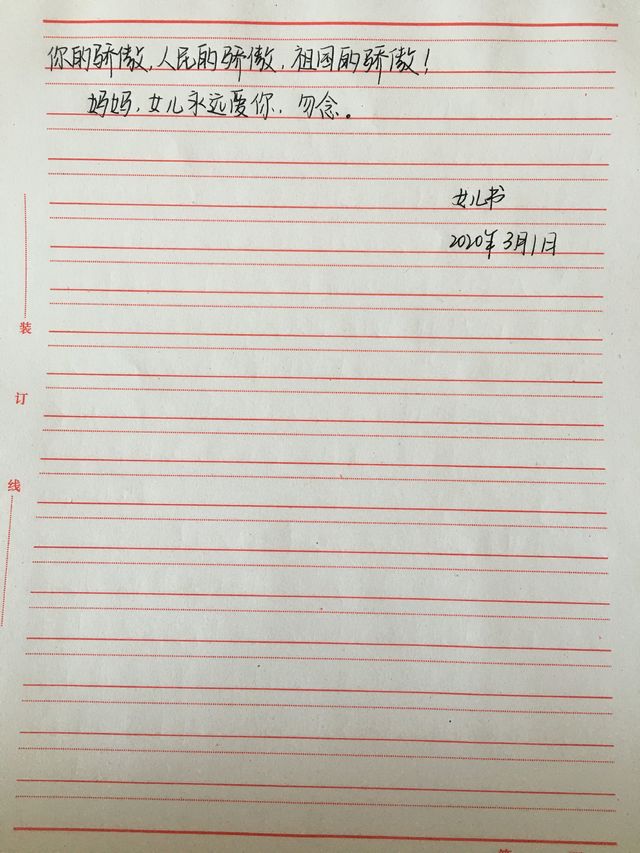 你的骄傲，人民的骄傲，祖国的骄傲！
妈妈，女儿永远爱你，勿念。
女儿书
2020年3月1日
装
订
线